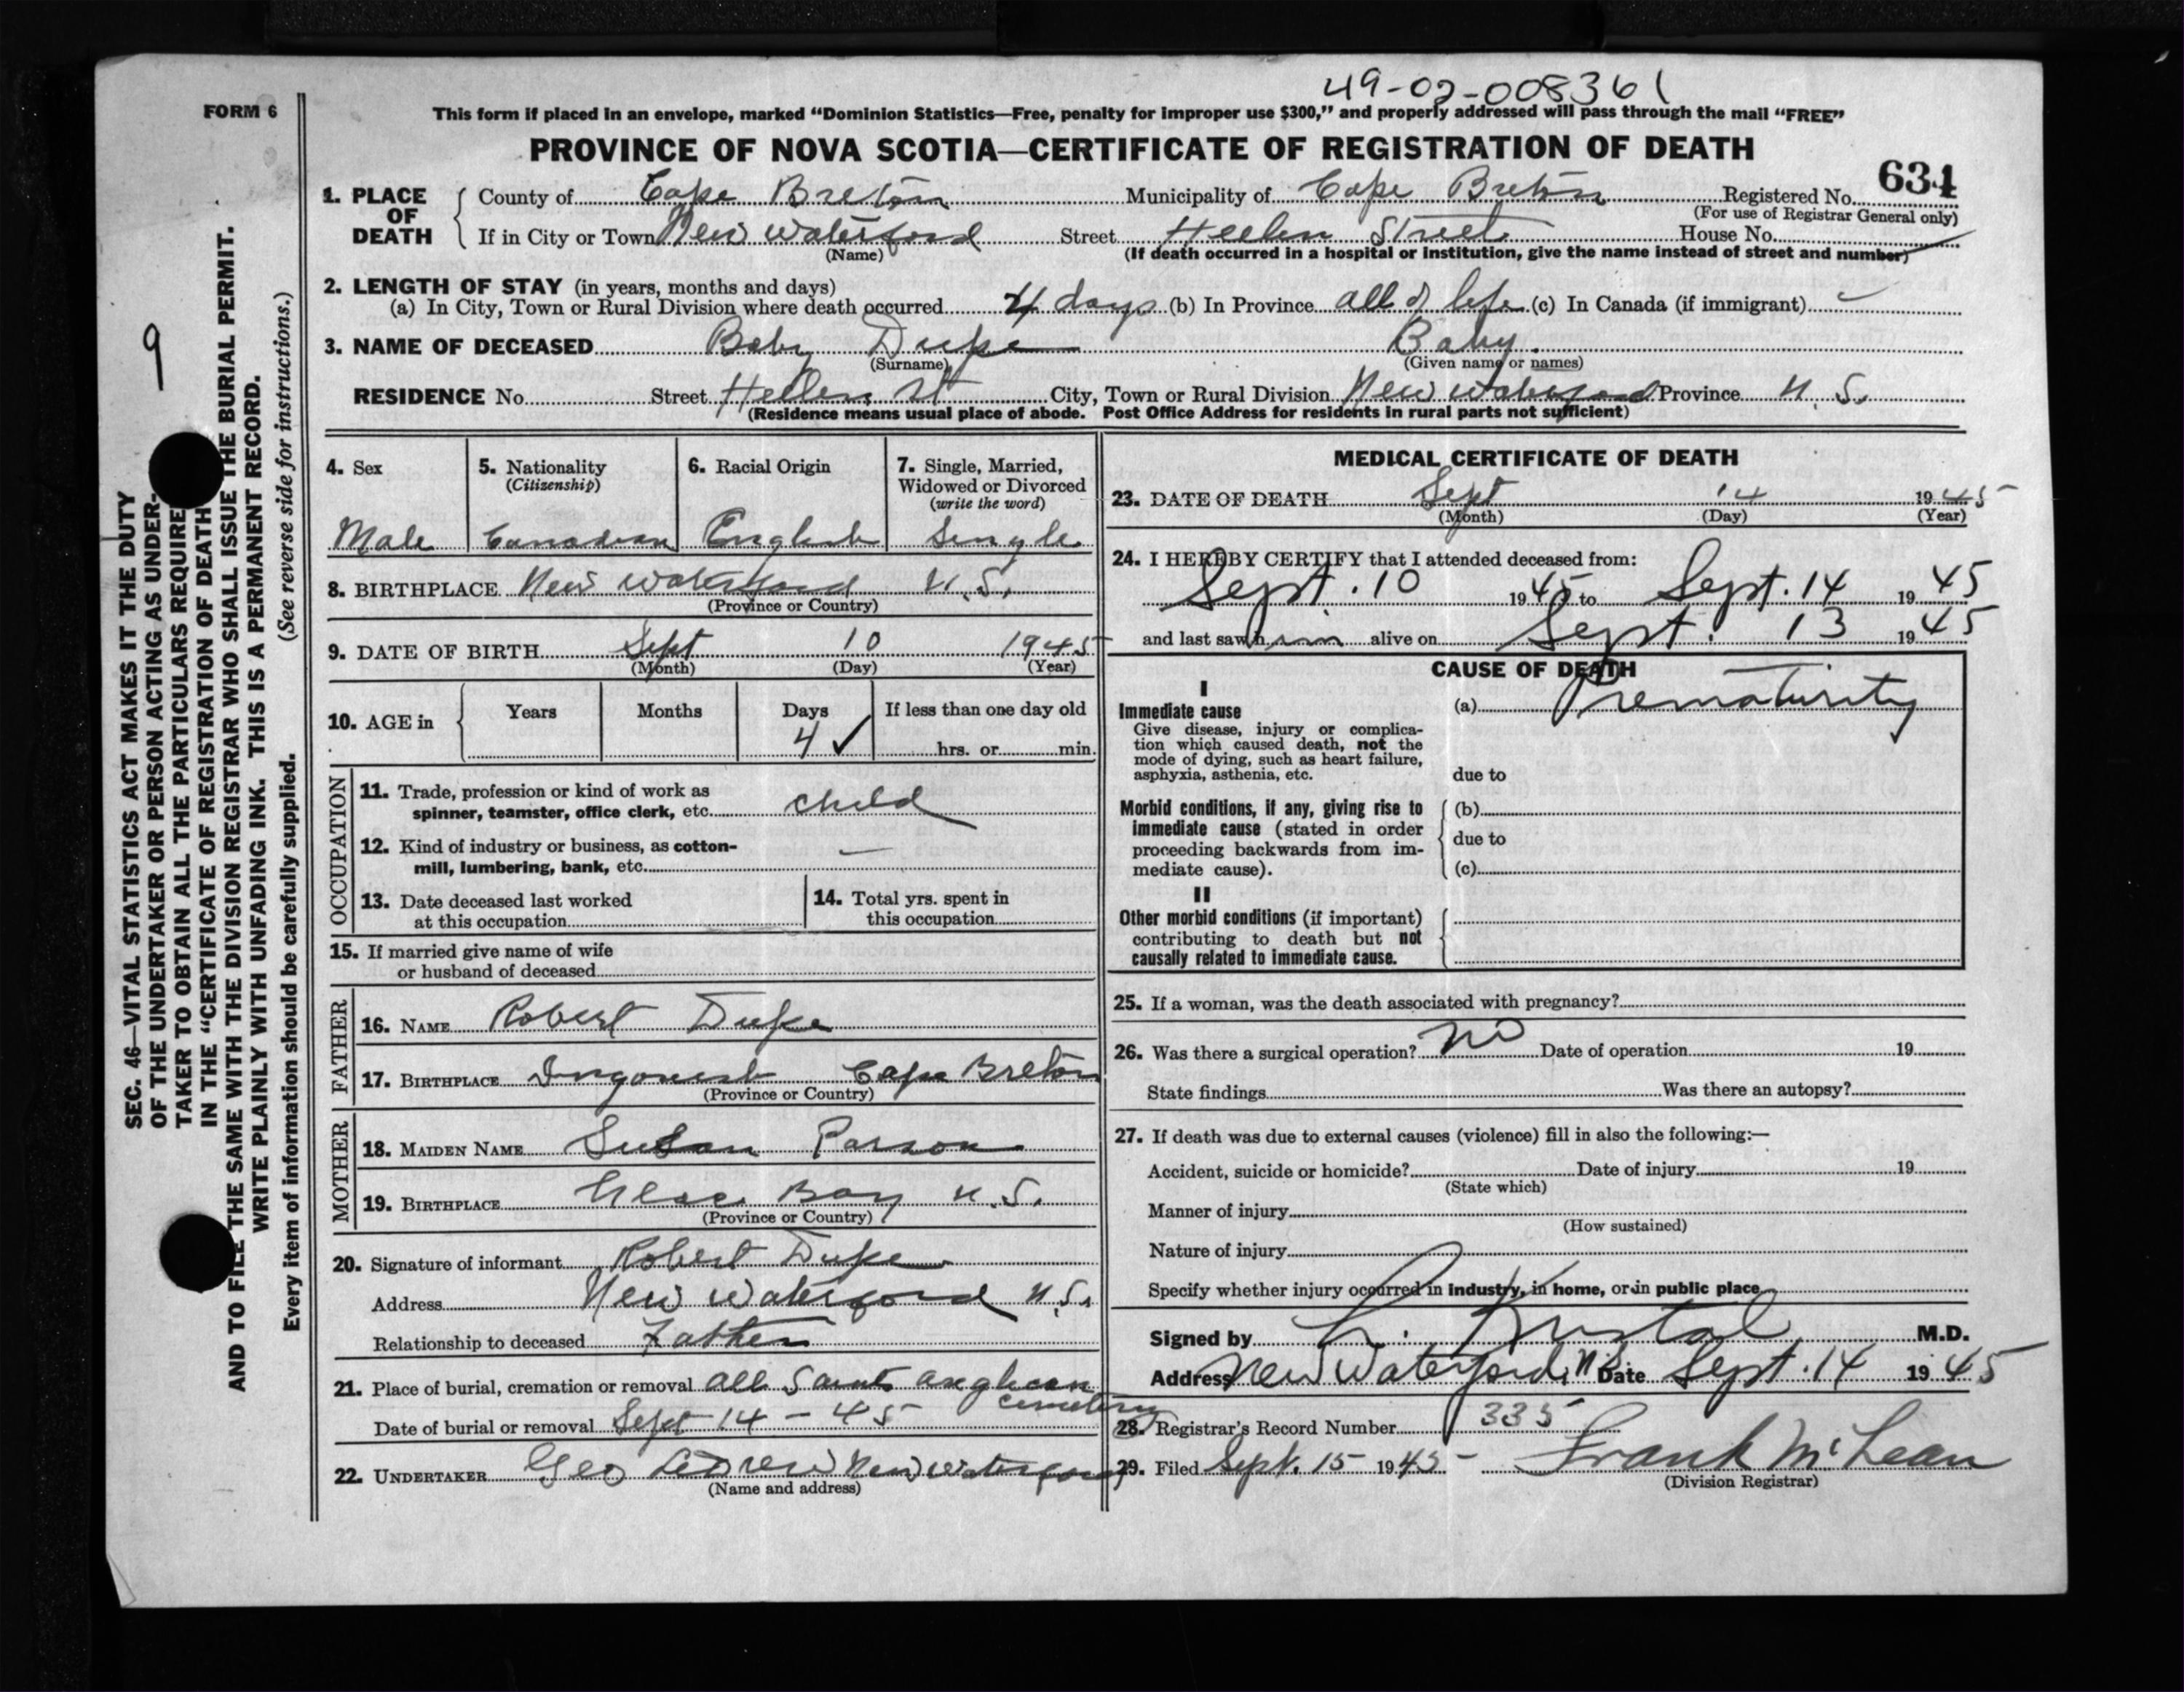 49-02-008361
FORM 6
This form if placed in an envelope, marked "Dominion Statistics—Free, penalty for improper use $300," and properly addressed will pass through the mail "FREE"
PROVINCE OF NOVA SCOTIA—CERTIFICATE OF REGISTRATION OF DEATH
634
1. PLACE OF DEATH { County of Cape Breton Municipality of Cape Breton Registered No.
(For use of Registrar General only)
If in City or Town New Waterford Street Hellen Street House No.
(Name) (If death occurred in a hospital or institution, give the name instead of street and number)
2. LENGTH OF STAY (in years, months and days)
(a) In City, Town or Rural Division where death occurred 4 days (b) In Province all of life (c) In Canada (if immigrant)
3. NAME OF DECEASED Baby Dupe Baby
(Surname) (Given name or names)
RESIDENCE No. Street Hellen St City, Town or Rural Division New Waterford Province N.S.
(Residence means usual place of abode. Post Office Address for residents in rural parts not sufficient)
4. Sex
Male
5. Nationality
(Citizenship)
Canadian
6. Racial Origin
English
7. Single, Married,
Widowed or Divorced
(write the word)
Single
8. BIRTHPLACE New Waterford N.S.
(Province or Country)
9. DATE OF BIRTH Sept 10 1945
(Month) (Day) (Year)
10. AGE in { Years Months Days If less than one day old
4 ✓ hrs. or min.
OCCUPATION
11. Trade, profession or kind of work as
spinner, teamster, office clerk, etc. child
12. Kind of industry or business, as cotton-
mill, lumbering, bank, etc. —
13. Date deceased last worked
at this occupation
14. Total yrs. spent in
this occupation
15. If married give name of wife
or husband of deceased
FATHER
16. NAME Robert Dupe
17. BIRTHPLACE Cape Breton
(Province or Country)
MOTHER
18. MAIDEN NAME Susan Parson
19. BIRTHPLACE Glace Bay N.S.
(Province or Country)
20. Signature of informant Robert Dupe
Address New Waterford N.S.
Relationship to deceased Father
21. Place of burial, cremation or removal All Saints Anglican
cemetery
Date of burial or removal Sept 14 - 45
22. UNDERTAKER Geo New Waterford
(Name and address)
MEDICAL CERTIFICATE OF DEATH
23. DATE OF DEATH Sept 14 1945
(Month) (Day) (Year)
24. I HEREBY CERTIFY that I attended deceased from:
Sept. 10 1945 to Sept. 14 1945
and last saw him alive on Sept. 13 1945
CAUSE OF DEATH
I
Immediate cause
Give disease, injury or complica-
tion which caused death, not the
mode of dying, such as heart failure,
asphyxia, asthenia, etc.
(a) Prematurity
due to
Morbid conditions, if any, giving rise to
immediate cause (stated in order
proceeding backwards from im-
mediate cause).
(b)
due to
(c)
II
Other morbid conditions (if important)
contributing to death but not
causally related to immediate cause.
25. If a woman, was the death associated with pregnancy?
26. Was there a surgical operation? no Date of operation 19
State findings Was there an autopsy?
27. If death was due to external causes (violence) fill in also the following:—
Accident, suicide or homicide? Date of injury 19
(State which)
Manner of injury
(How sustained)
Nature of injury
Specify whether injury occurred in industry, in home, or in public place
Signed by M.D.
Address New Waterford, N.S. Date Sept. 14 1945
28. Registrar's Record Number 335
29. Filed Sept. 15 1945 - Frank McLean
(Division Registrar)
9
SEC. 46—VITAL STATISTICS ACT MAKES IT THE DUTY
OF THE UNDERTAKER OR PERSON ACTING AS UNDER-
TAKER TO OBTAIN ALL THE PARTICULARS REQUIRED
IN THE "CERTIFICATE OF REGISTRATION OF DEATH"
AND TO FILE THE SAME WITH THE DIVISION REGISTRAR WHO SHALL ISSUE THE BURIAL PERMIT.
WRITE PLAINLY WITH UNFADING INK. THIS IS A PERMANENT RECORD.
Every item of information should be carefully supplied. (See reverse side for instructions.)